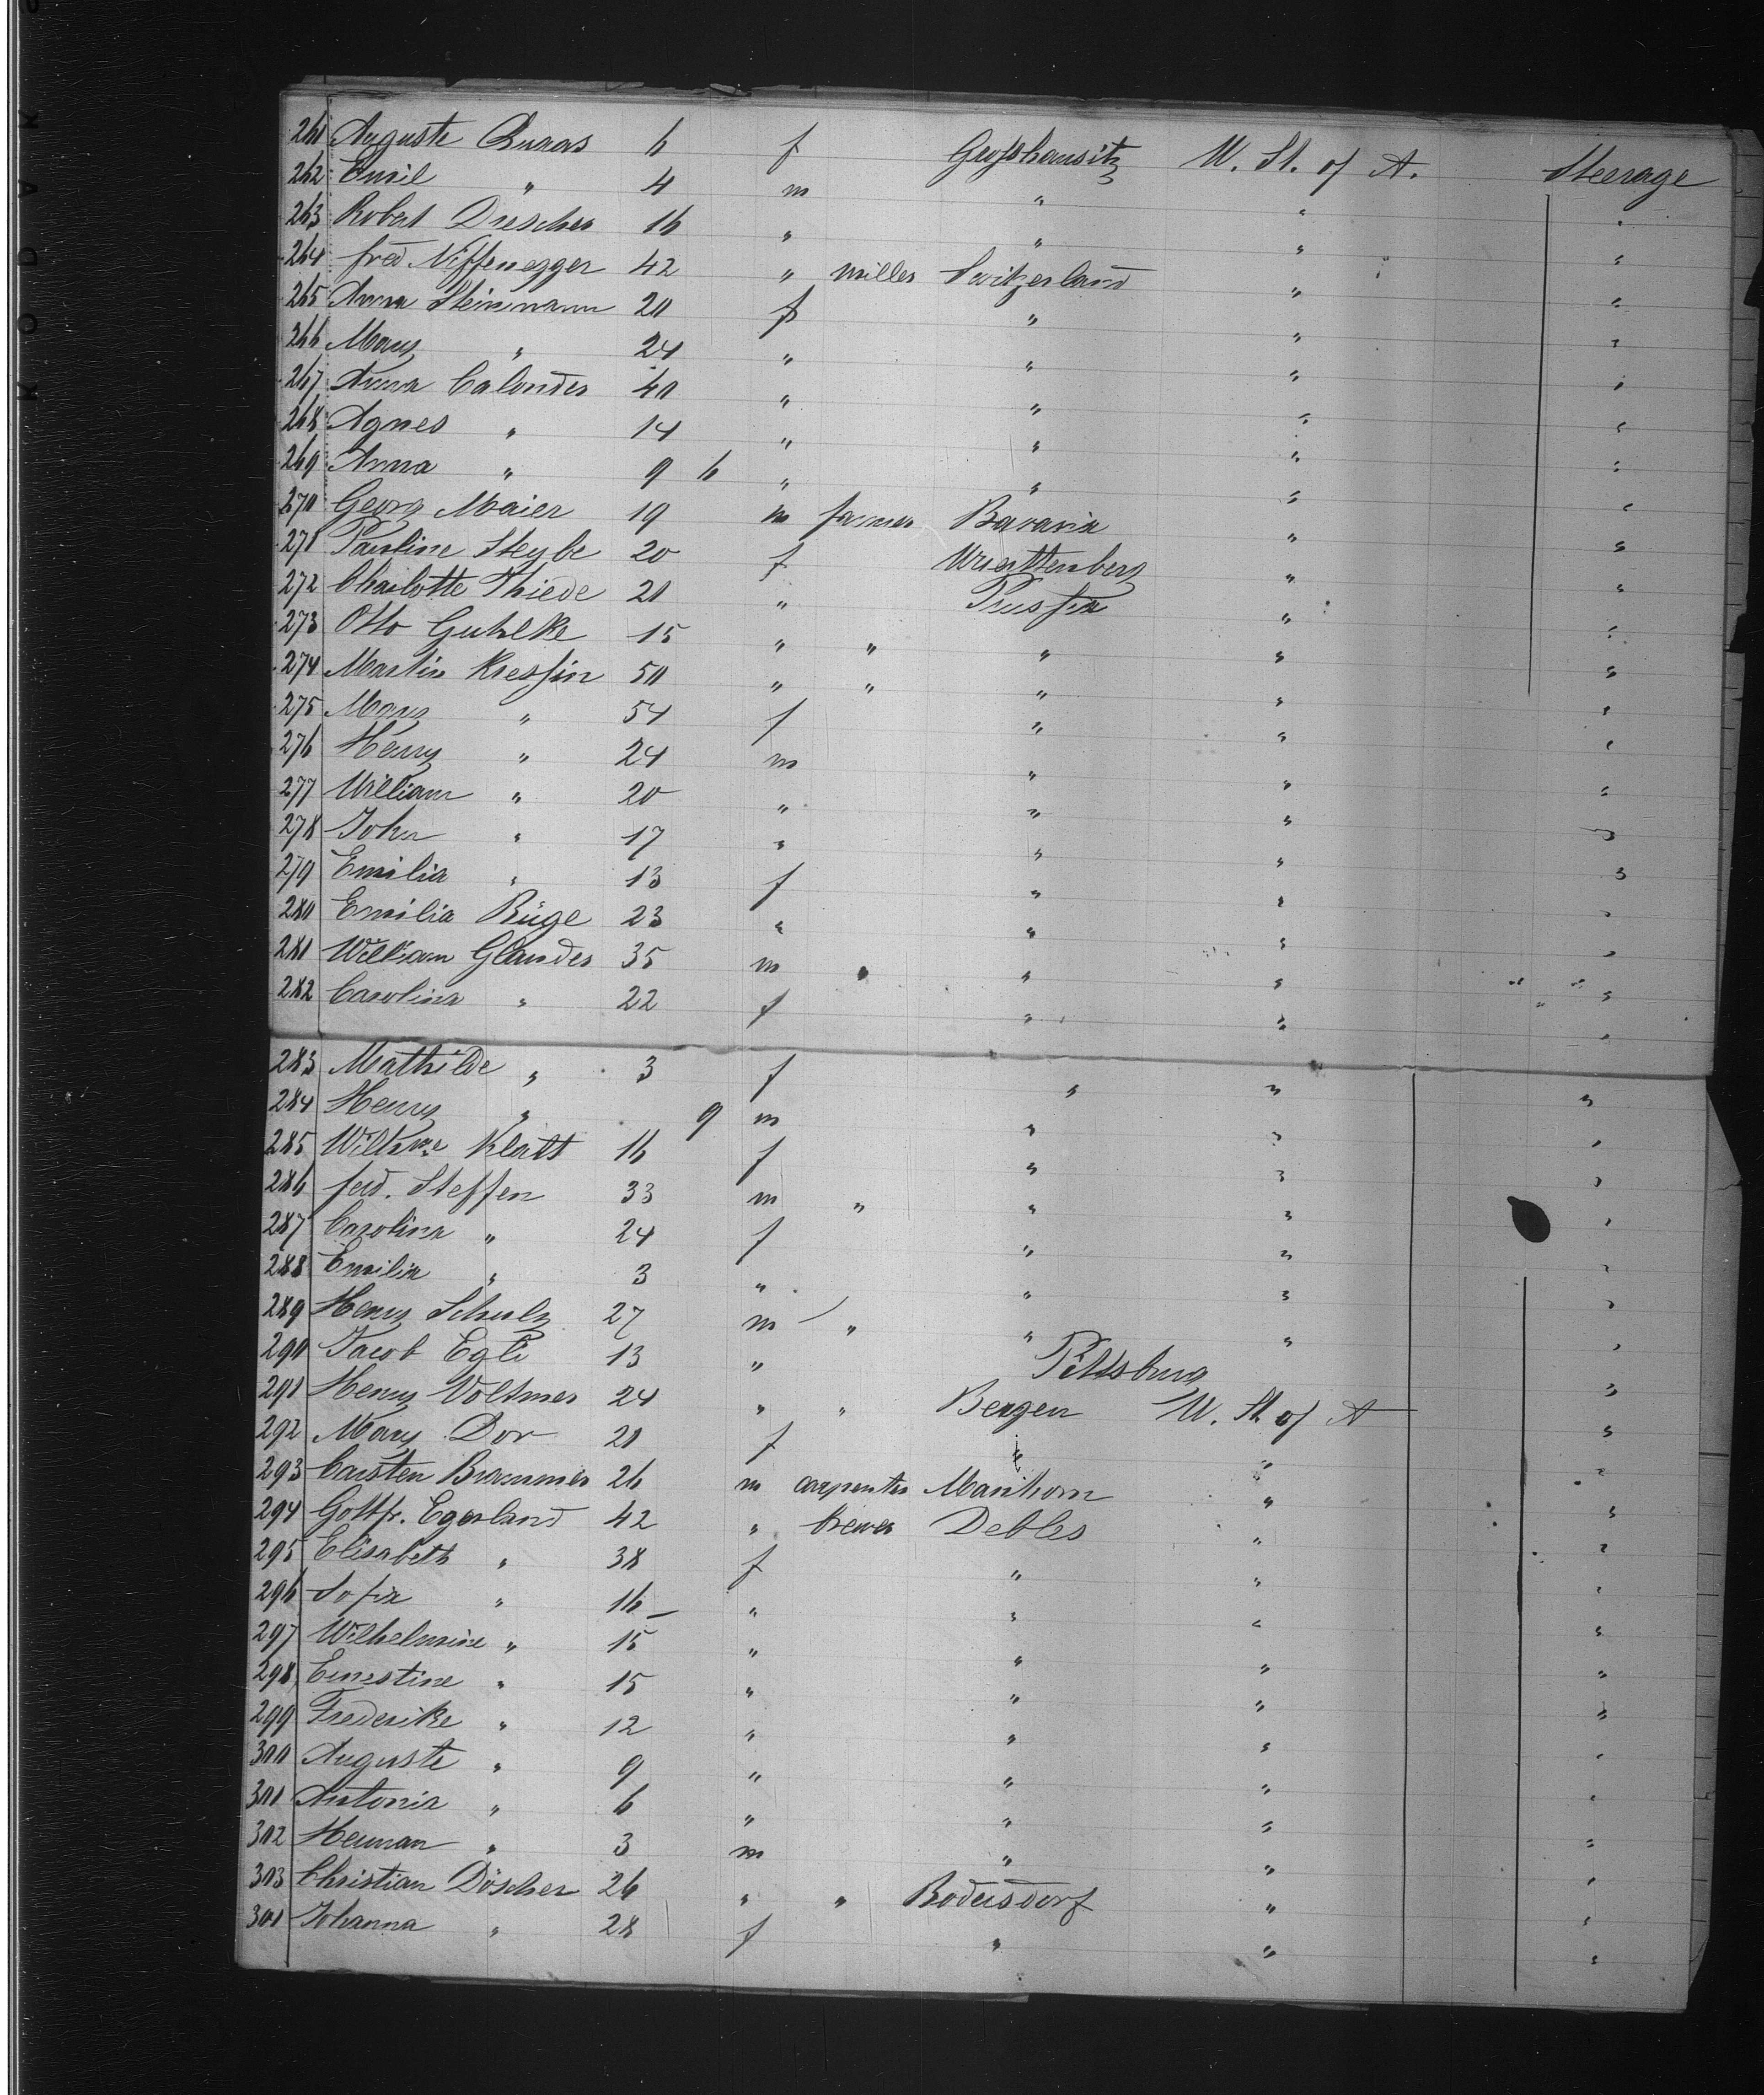 261 Auguste Buras 6 f Grosshausitz U. St. of A. Steerage
262 Emil " 4 m " " "
263 Robert Drescher 16 " " " "
264 fred Niffenegger 42 " miller Switzerland " "
265 Anna Steinmann 20 f " " "
266 Mary " 24 " " " "
267 Anna Calonder 40 " " " "
268 Agnes " 14 " " " "
269 Anna " 9 6 " " " "
270 Georg Maier 19 m farmer Bavaria " "
271 Pauline Steybe 20 f Wuerttenberg " "
272 Charlotte Thiede 20 " Prussia " "
273 Otto Guhlke 15 " " " " "
274 Martin Kressin 50 " " " " "
275 Mary " 54 f " " "
276 Henry " 24 m " " "
277 William " 20 " " " "
278 John " 17 " " " "
279 Emilia " 13 f " " "
280 Emilia Rüge 23 " " " "
281 William Glander 35 m " " " "
282 Carolina " 22 f " " "
283 Mathilde " 3 f " " "
284 Henry " 9 m " " "
285 Wilhme Klatt 16 f " " "
286 ferd. Steffen 33 m " " " "
287 Carolina " 24 f " " "
288 Emilia " 3 " " " "
289 Henry Schulz 27 m " " " "
290 Jacob Egli 13 " Pittsburg "
291 Henry Voltmer 24 " " Bergen U. St. of A "
292 Mary Dor 20 f " " "
293 Carsten Brammer 26 m carpenter Manhorn " "
294 Gottfr. Egerland 42 " brewer Debles " "
295 Elisabeth " 38 f " " "
296 Sofia " 16 " " " "
297 Wilhelmine " 15 " " " "
298 Ernestine " 15 " " " "
299 Frederike " 12 " " " "
300 Auguste " 9 " " " "
301 Antonia " 6 " " " "
302 Herman " 3 m " " "
303 Christian Döscher 26 " " Bodersdorf " "
301 Johanna " 28 f " " "
KODAK